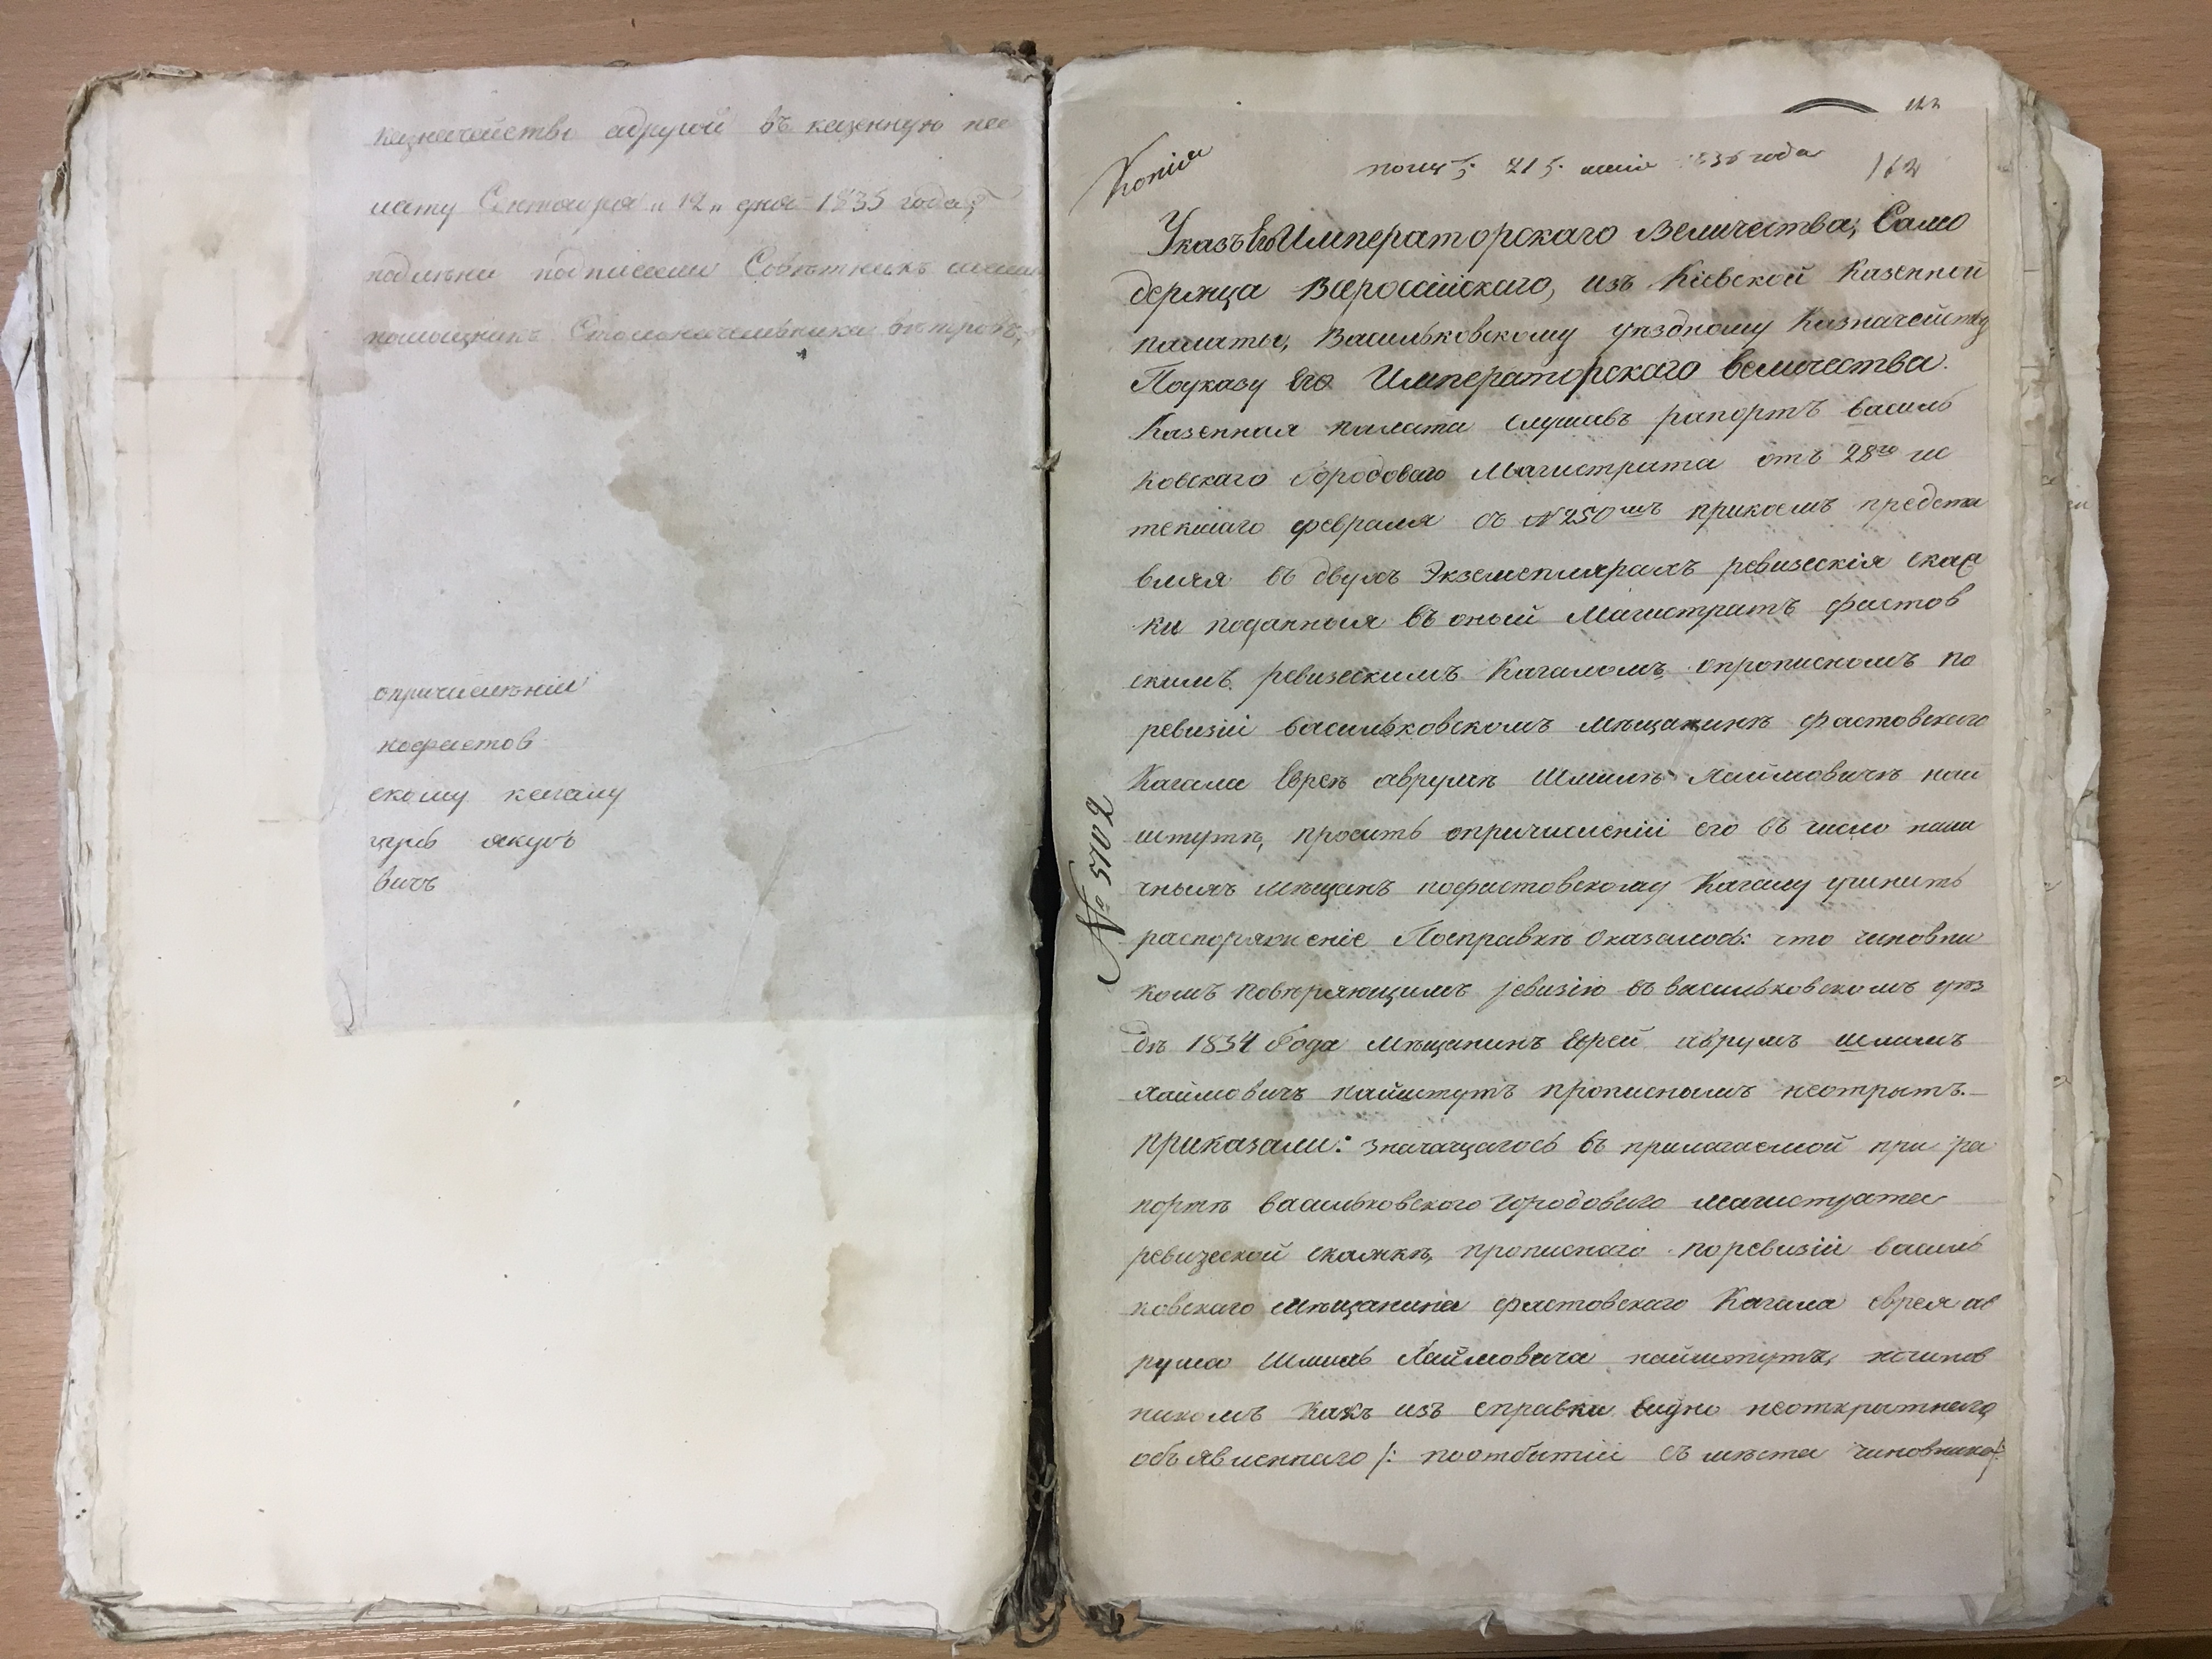 казначейство адругой въ казенную пал
лату Сентября „12„ дня 1835 года,
подлѣны подписали Совѣтникъ
помощникъ Столоначальника Вѣтровъ,
опричисленіи
пофастов
скому кагалу
вичъ
Копія
получ: 21 1835 года
162
Указъ Его Императорскаго Величества, Само
держца Всеросійскаго, изъ Кіевской Казенной
палаты, Васильковскому уѣздному Казначейству
Поуказу Его Императорскаго величества.
Казенная палата слушавъ рапортъ василь
ковскаго Городоваго Магистрата отъ 28го ис
текшаго февраля съ №250мъ прикоемъ предста
вляя въ двухъ Экземплярахъ ревизскія сказ
ки поданныя въ оный Магистратъ фастов
скимъ ревизскимъ Кагаломъ, опрописномъ по
ревизіи васильковскомъ мѣщанинѣ фастовского
Кагала Евреѣ аврумѣ Шмилѣ Хаймовичѣ най
штутѣ, просить опричисленіи его въ число нали
чныхъ мѣщанъ пофастовскому Кагалу учинить
распоряженіе Посправкѣ Оказалось: что чиновни
комъ повѣряющимъ ревизію въ васильковскомъ уѣз
дѣ 1834 Года мѣщанинъ Еврей аврумъ шмиль
хаймовичъ найштутъ прописнымъ неотрытъ.—
приказали: значащагось въ прилагаемой при ра
портѣ васильковского Городоваго магистрата
ревизской скажкѣ, прописнаго поревизіи василь
ковскаго мѣщанина фастовскаго Кагала еврея ав
рума Шмиль Хаймовича найштутъ, чинов
никомъ какъ изъ справки видно неоткрытнаго
объявленнаго /: поотбытіи съ мѣста чиновника:/
№ 5702